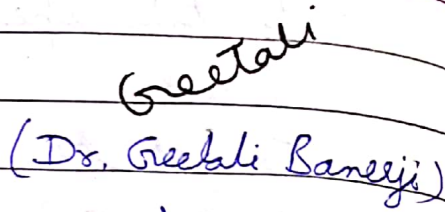 Geetali
(Dr. Geetali Banerji)